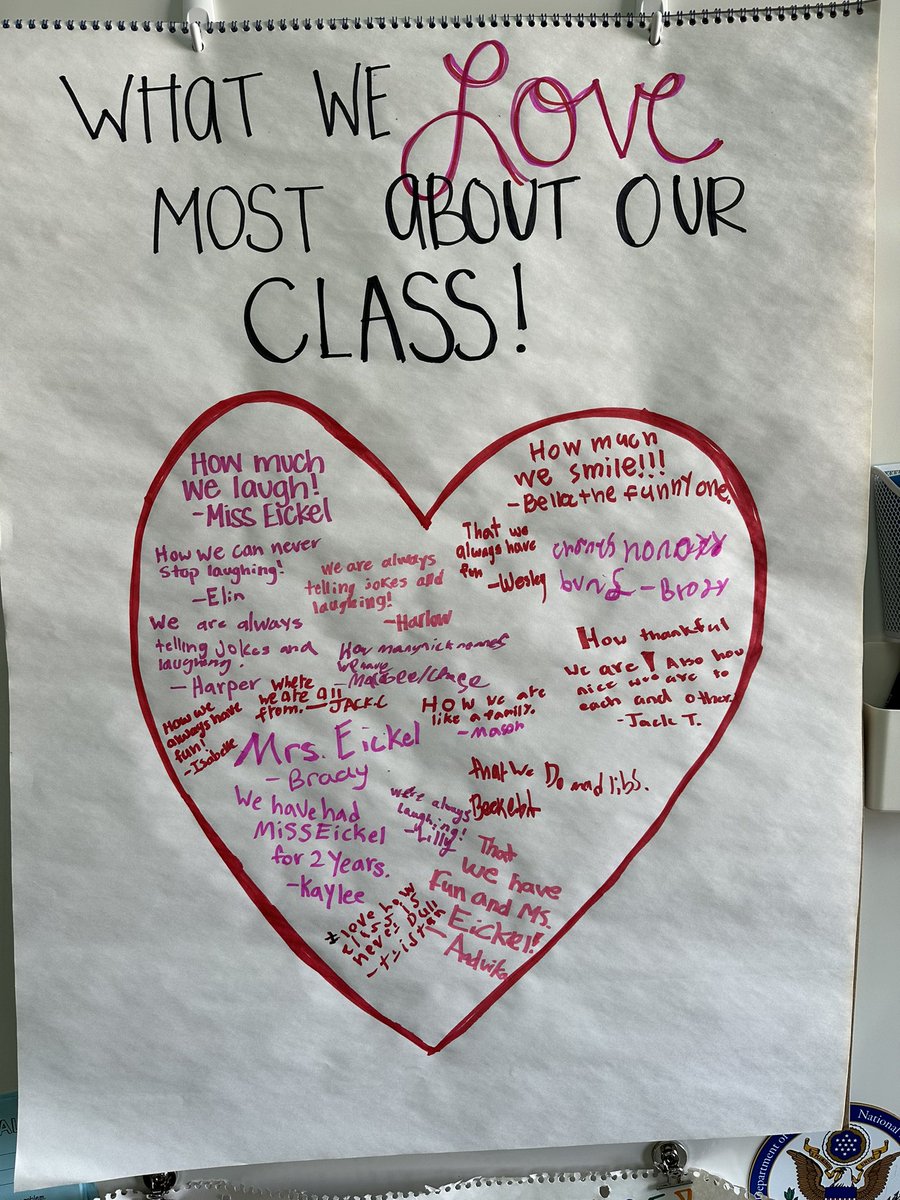 WHAT WE Love
MOST ABOUT OUR
CLASS!
How much
we laugh!
-Miss Eickel
How much
we smile!!!
-Bella the funny one.
How we can never
stop laughing!
-Elin
we are always
telling jokes and
laughing!
-Harlow
That we
always have
fun
-Wesley
-Brody
We are always
telling jokes and
laughing!
-Harper
How many nicknames
we have
How thankful
we are! Also how
nice we are to
each and other.
-Jack T.
How we
always have
fun!
-Isabelle
where
we are all
from. -JACK.C
How we are
like a family.
-Mason
Mrs. Eickel
-Brady
that we Do mad libs.
Beckett
We have had
Miss Eickel
for 2 years.
-Kaylee
we're always
laughing!
-Lilly
That
we have
Fun and Ms.
Eickel!
-Aadvika
I love how
class is
never Dull
-tristan
Department of
National